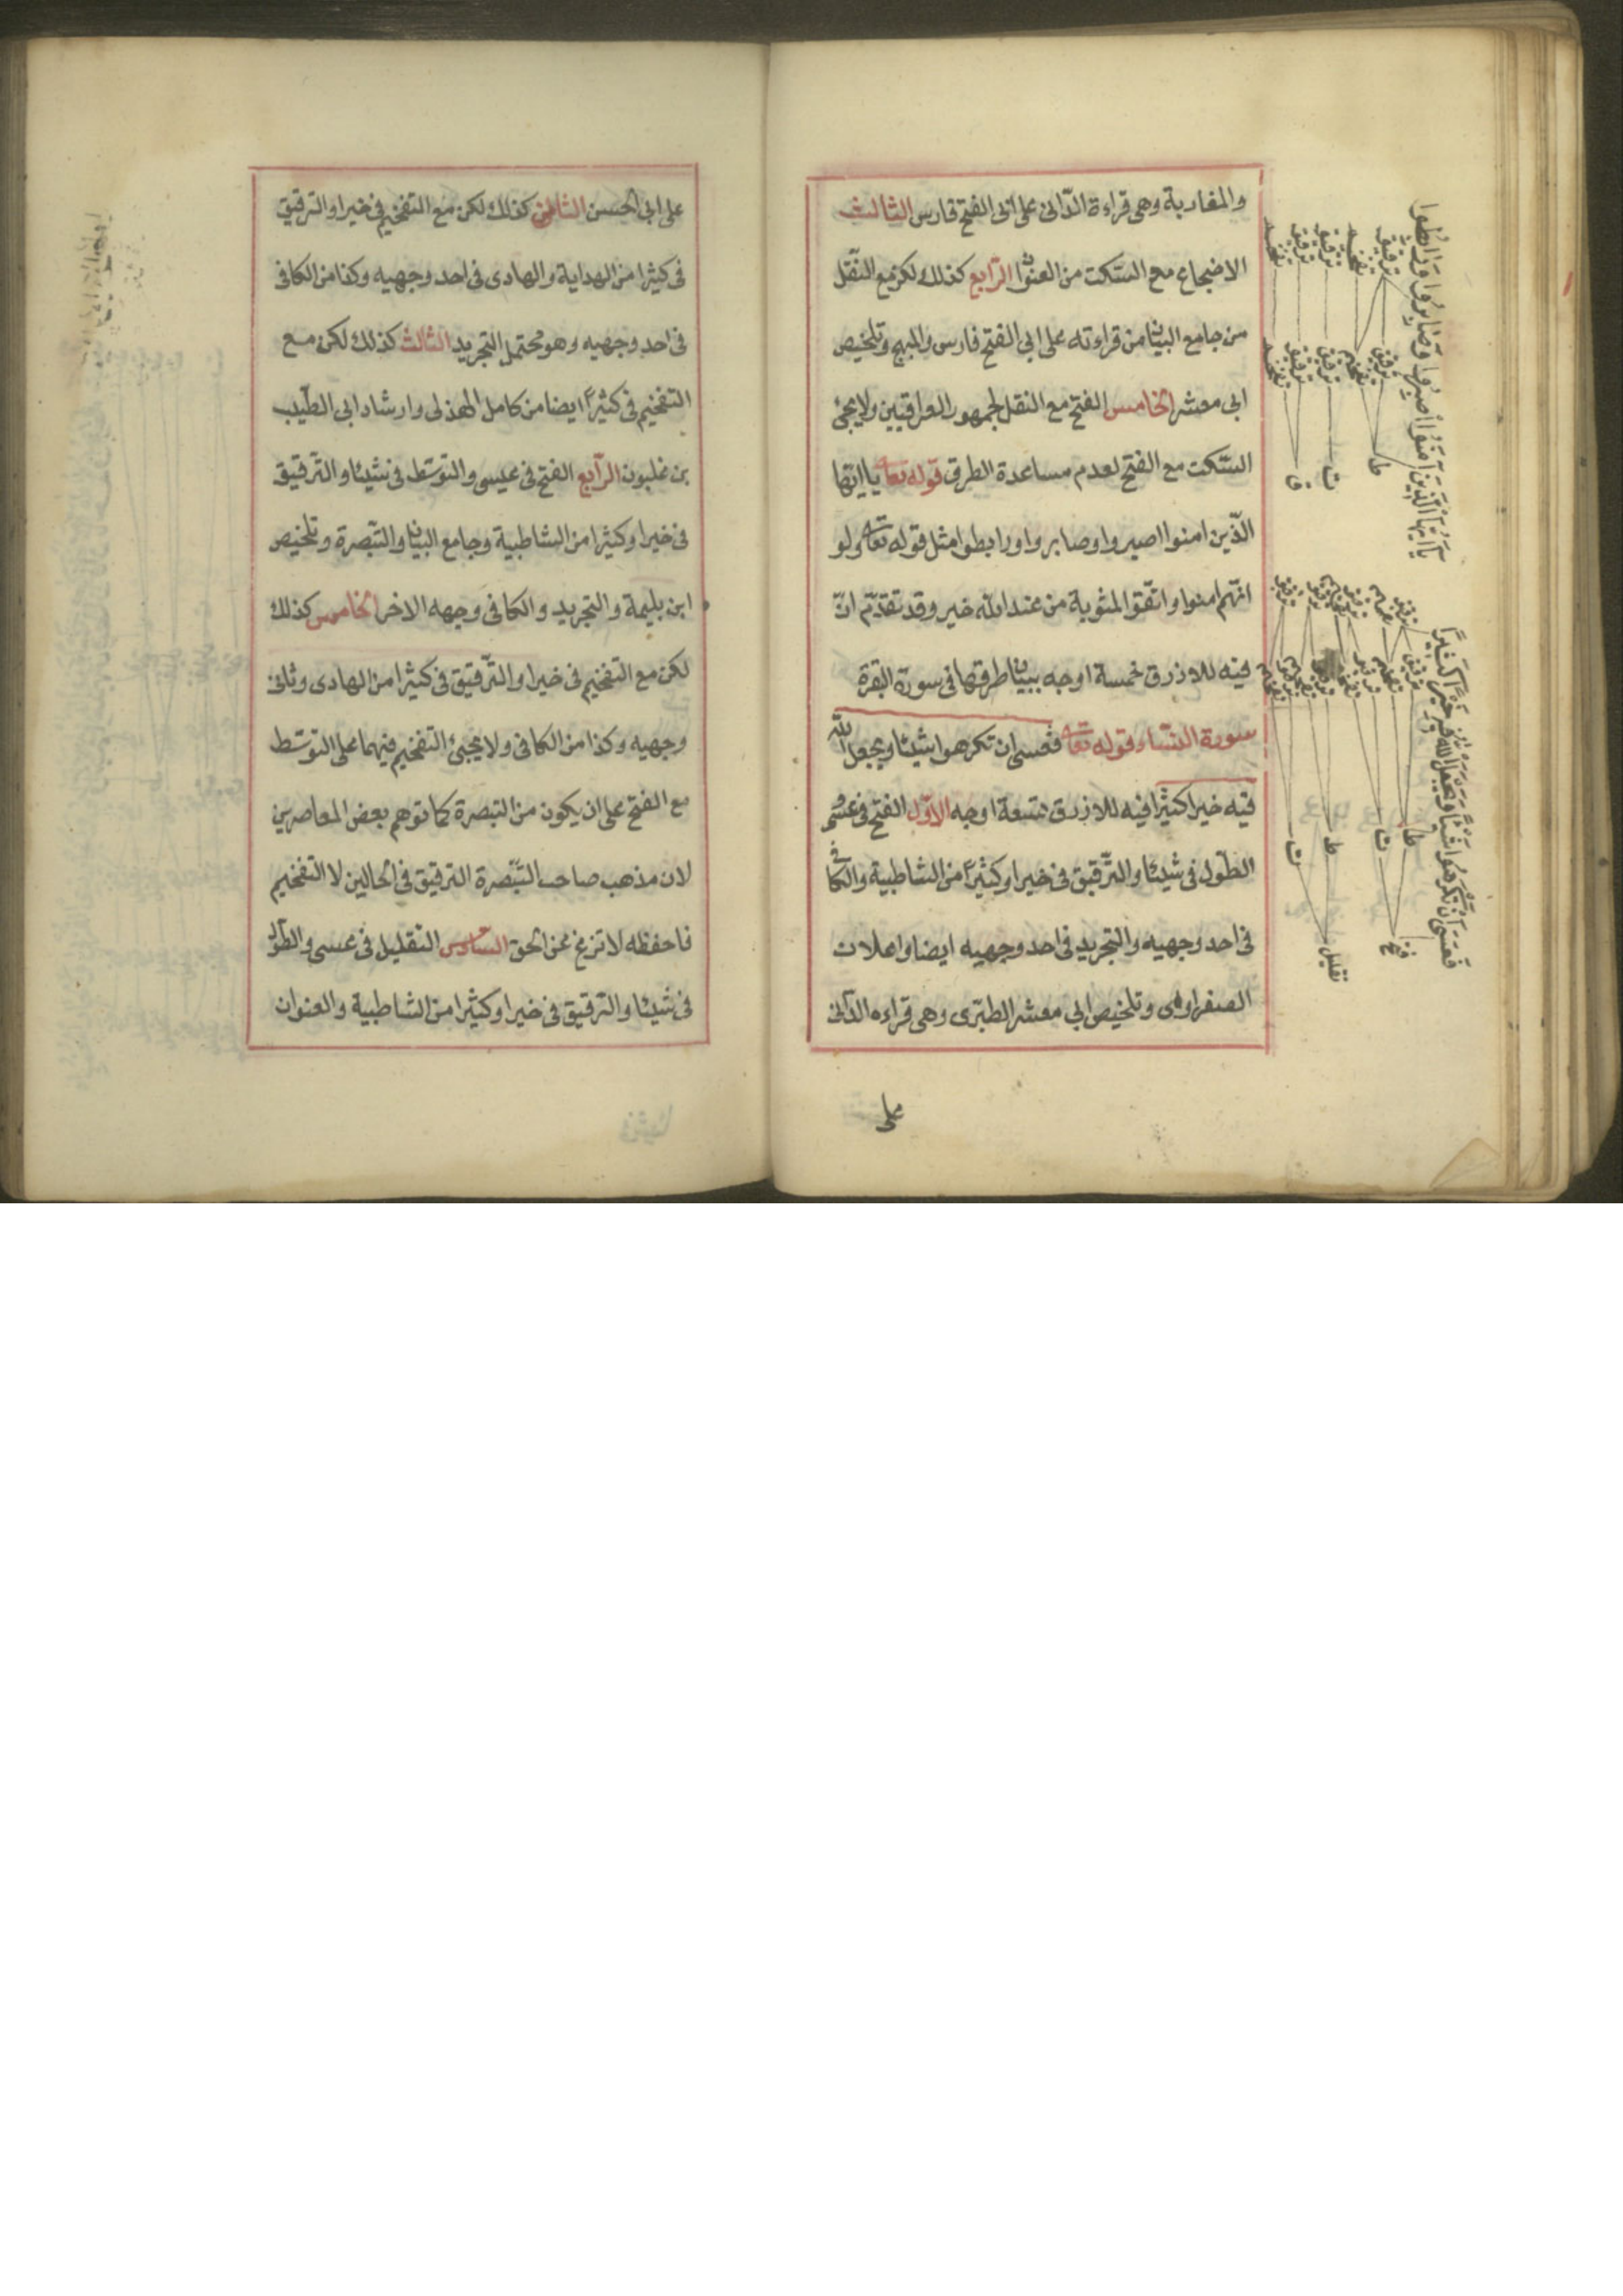 والمغاربة وهى قراءة الدّانى على ابى الفتح فارس الثالث
الاضجاع مع السّكت من العنوا الرّابع كذلك لكن مع النّقل
من جامع البيان من قراءته على ابى الفتح فارس والمبهج وتلخيص
ابى معشر الخامس الفتح مع النقل لجمهور العراقيين ولا يجئ
السّكت مع الفتح لعدم مساعدة الطرق قوله تعا يا ايّها
الّذين امنوا اصبروا وصابروا ورابطوا مثل قوله تعا ولو
انّهم امنوا واتقوا لمثوبة من عند الله خير وقد تقدّم انّ
فيه للازرق خمسة اوجه ببيان طرقها فى سورة البقرة
سورة النّساء قوله تعا فعسى ان تكرهوا شيئا ويجعل الله
فيه خيرا كثيرا فيه للازرق تسعة اوجه الاوّل الفتح فى عسى و
الطّول فى شيئا والتّرقيق فى خيرا وكثيرًا من الشاطبية والكافى
فى احد وجهيه والتجريد فى احد وجهيه ايضا واعلان
الصفراوى وتلخيص ابى معشر الطبّرى وهى قراءه الدّانى
على
يَا اَيُّهَا الَّذِينَ آمَنُوا اصْبِرُوا وَصَابِرُوا وَرَابِطُوا
ترقيق تفخيم ترقيق ترقيق تفخيم
ترقيق تفخيم ترقيق ترقيق تفخيم
ط ت ق
فَعَسَى اَنْ تَكْرَهُوا شَيْئًا وَيَجْعَلَ اللهُ فِيهِ خَيْرًا كَثِيرًا
ط ت ط ت
فتح تقليل
على ابى الحسن الثانى كذلك لكن مع التفخيم فى خيرا والترقيق
فى كثيرا من الهداية والهادى فى احد وجهيه وكذا من الكافى
فى احد وجهيه وهو محتمل التجريد الثالث كذلك لكن مع
التفخيم فى كثيرًا ايضا من كامل الهذلى وارشاد ابى الطّيب
بن غلبون الرّابع الفتح فى عيسى والتوسّط فى شيئا والتّرقيق
فى خيرا وكثيرا من الشاطبية وجامع البيان والتّبصرة وتلخيص
ابن بليمة والتجريد والكافى وجهه الاخر الخامس كذلك
لكن مع التّفخيم فى خيرا والتّرقيق فى كثيرا من الهادى وثانى
وجهيه وكذا من الكافى ولا يجيئ التفخيم فيهما على التوسّط
مع الفتح على ان يكون من التبصرة كما توهم بعض المعاصرين
لان مذهب صاحب التّبصرة الترقيق فى الحالين لا التفخيم
فاحفظه لا تزغ عن الحق السّادس التقليل فى عسى والطّول
فى شيئا والترقيق فى خيرا وكثيرا من الشاطبية والعنوان